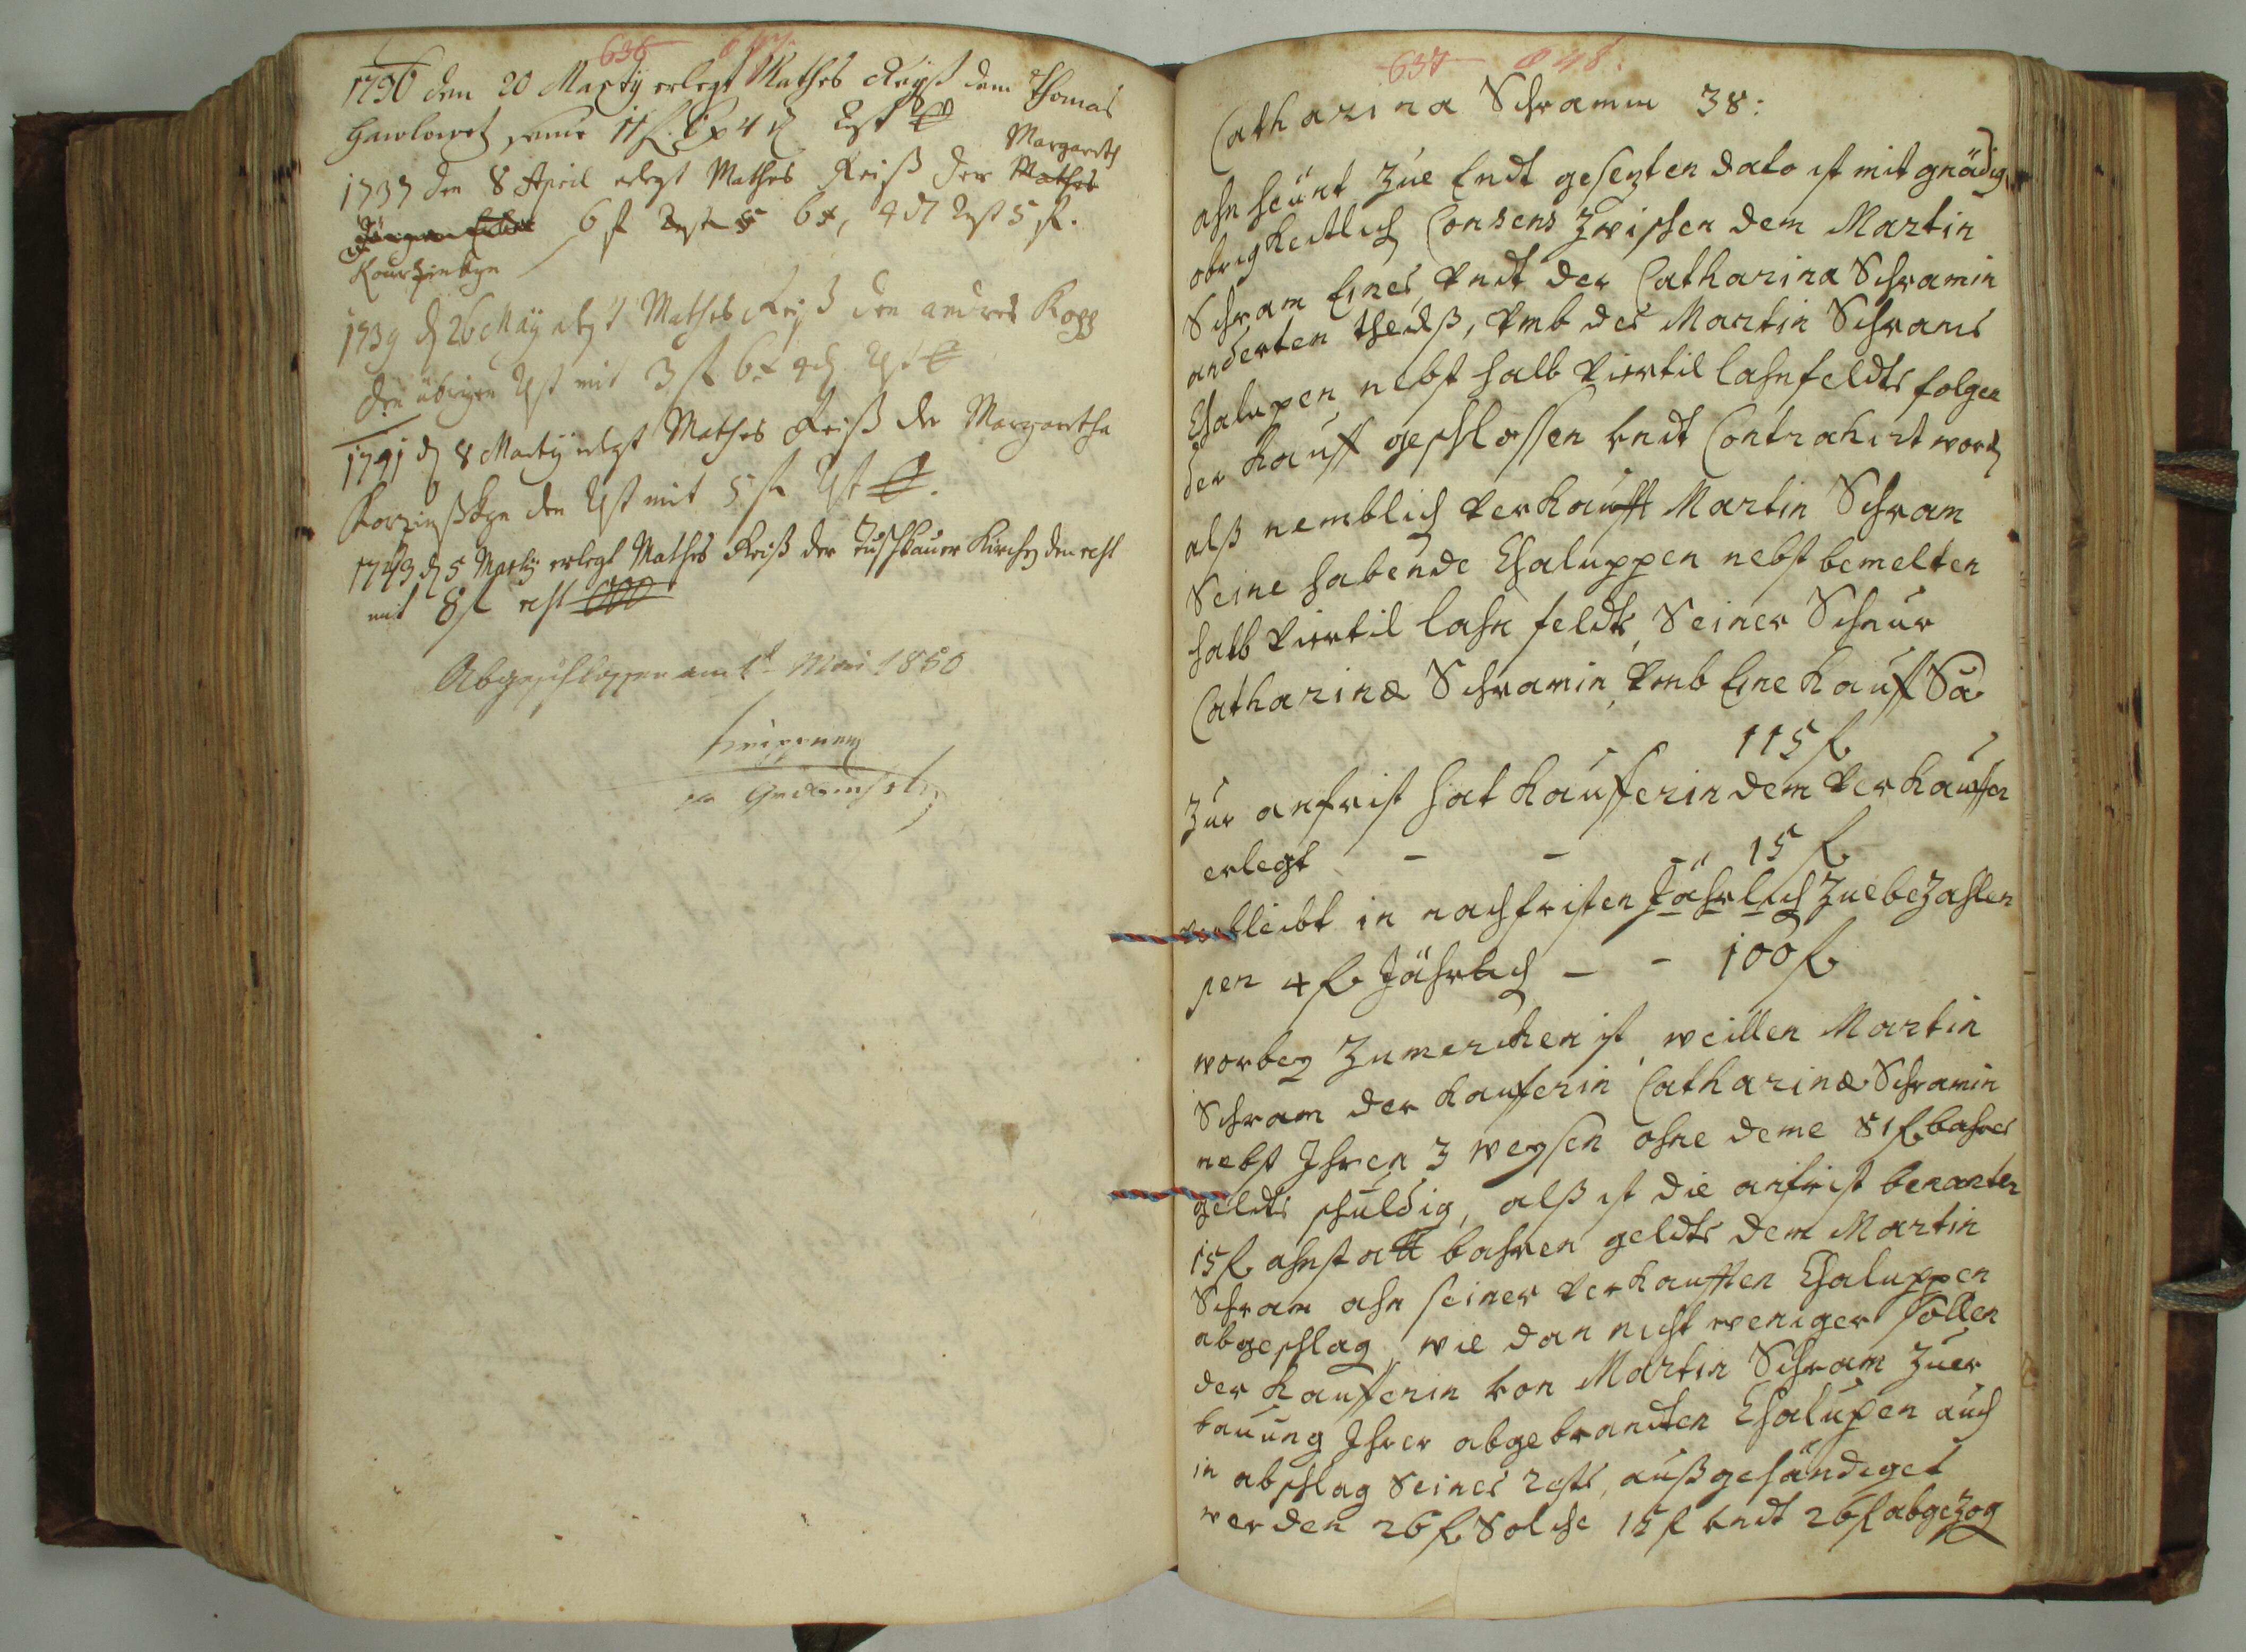 636
1736 den 20 Marty erlegt Mathes Reyß dem Thomas
11 f. 4 Rest
Margareth
1737 den 8 April erlegt Mathes Reiß der Mathes
6 f Rest 6 x, 4 d Rest 5 f.
1739 d 26 May erlegt Mathes Reiß den andres Kopp
den übrigen Rest mit 3 f 6 x 4 d. Rest
1741 d 8 Marty erlegt Mathes Reiß der Margaretha
den Rest mit 5 f Rest
1743 d 5 Marty erlegt Mathes Reiß der Tuschkauer Kirchen den rest
mit 8 f rest
Abgeschlossen am 1t Mai 1850
637
Catharina Schramin 38:
ahn heünt zue Endt gesezten dato ist mit gnädig
obrigkeitlich Consens zwischen dem Martin
Schram Eines, vndt der Catharina Schramin
anderten theilß, vmb des Martin Schrams
Chalupen nebst halb viertil lahn feldts folgen
der Kauff geschlossen vndt Contrahirt word
alß nemblich verkaufft Martin Schram
Seine habende Chaluppen nebst bemelten
halb viertil lahn feldts, Seiner Schnur
Catharina Schramin, vmb Eine Kauff Sa
115 f
Zur anfrist hat Kaufferin dem verkauffer
erlegt - - 15 f
verbleibt in nachfristen Jährlich zue bezahlen
per 4 f Jährlich - - 100 f
worbey zumercken ist, weillen Martin
Schram der Kaufferin Catharina Schramin
nebst Ihren 3 weysen ohne deme 81 f bahres
geldts schuldig, alß ist die anfrist benanter
15 f ahnstatt bahren geldts dem Martin
Schram ahn seiner verkaufften Chaluppen
abgeschlag, wie dan nicht weniger sollen
der Kaufferin von Martin Schram zuer
bauung Ihrer abgebrandten Chalupen auch
in abschlag Seines rests, außgehändiget
werden 26 f Solche 15 f vndt 26 f abgezog